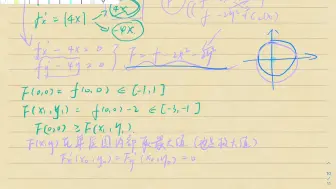 fx' = |4x|
4x
-4x
fx' - 4x = 0
fy' - 4y = 0
F = f - 2x² -
F(0,0) = f(0,0) ∈ [-1,1]
F(x₁,y₁) = f(0,0) - 2 ∈ [-3,-1]
F(0,0) ≥ F(x₁,y₁)
F(x,y)在单位圆内部取最大值（极大值）
Fx'(x₀,y₀) = Fy'(x₀,y₀) = 0